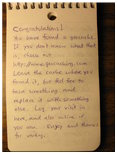 Congratulations!
You have found a geocache.
If you don't know what that
is, check out
http://www.geocaching.com
Leave the cache where you
found it, but feel free to
take something, and
replace it with something
else. Log your visit in
here, and also online if
you can. Enjoy and thanks
for visiting.